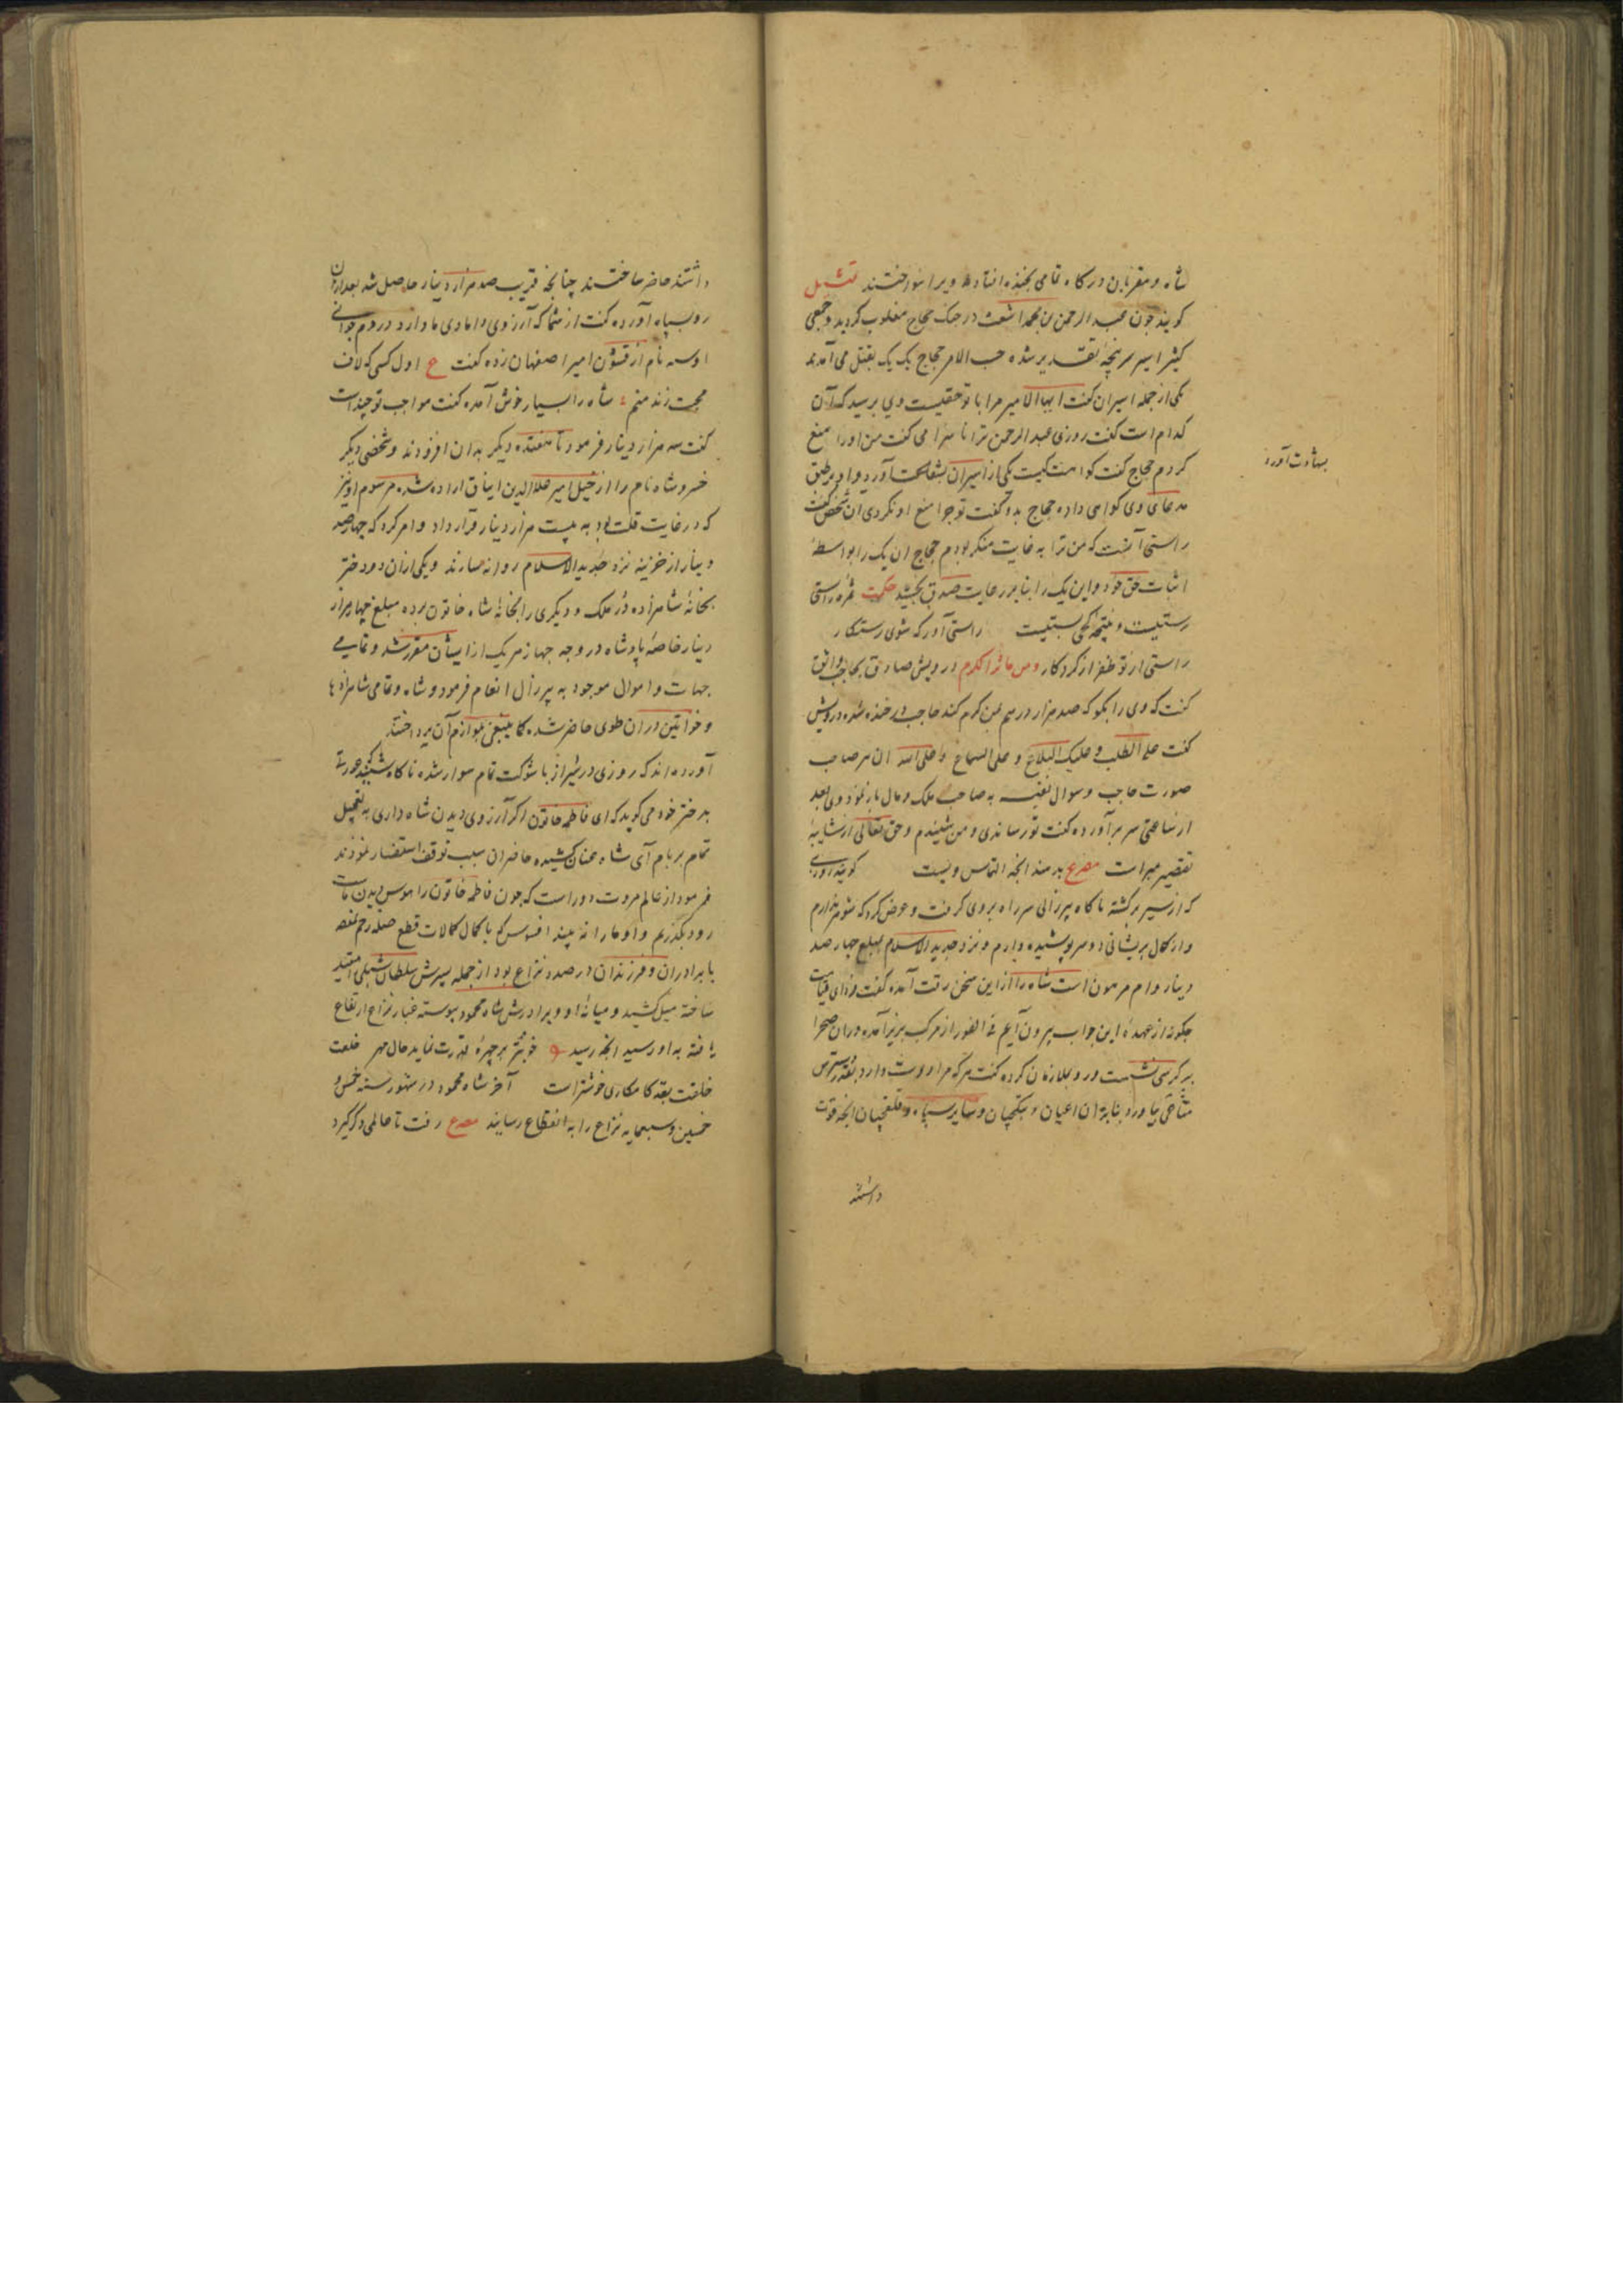 شاه و مقربان درگاه تمامی بخنده افتاده ویرا نواختند تمثیل
کویند چون عبد الرحمن بن محمد اشعث در جنک حجاج مغلوب کردید و جمعی
کثیر اسیر سرپنجهٔ تقدیر شده حسب الامر حجاج یک یک بقتل می آمدند
یکی از جمله اسیران کفت ایها الامیر مرا با تو حقیست وی پرسید که آن
کدام است کفت روزی عبد الرحمن ترا ناسزا می کفت من او را منع
کردم حجاج کفت کواهت کیست یکی از اسیران بشفاعت آورد و او بر طبق
بشهادت آورد
مدعای وی کواهی داده حجاج بدو کفت تو چرا منع او نکردی آن شخص کفت
راستی آنست که من ترا به غایت منکر بودم حجاج آن یک را بواسطهٔ
اثبات حق خود و این یک را بنا بر رعایت صدق بخشید حکمت ثمرهٔ راستی
رستیست و نتیجهٔ کجی بستیست راستی آور که شوی رستکار
راستی از تو ظفر از کردکار و من مآثر الکرم درویش صادق بحاجب واثق
کفت که وی را بکو که صد هزار درهم بمن کرم کند حاجب در خنده شده درویش
کفت علی الطلب و علیک البلاغ و علی السماع و علی الله آن سر صاحب
صورت حاجب و سوال بعینه به صاحب ملک و مال باز نمود وی بعد
از ساعتی سر برآورده کفت تو رساندی و من شنیدم و حق تعالی از شایبهٔ
تقصیر مبراست مصرع بدهند آنچه التماس ویست کویند روزی
که از سیر برکشته ناکاه پیرزالی سر راه بروی کرفت و عرض کرد که شوهر ندارم
و از کمال پریشانی دو سر پوشیده دارم و نزد جدید الاسلام بمبلغ چهار صد
دینار وام مرهون است شاه را از این سخن رقت آمده کفت فردای قیامت
چکونه از عهدهٔ این جواب بیرون آیم فی الفور از مرکب بزیر آمده در آن صحرا
بر کرسی نشست و رو بملازمان کرده کفت هر که مرا دوست دارد بقدر دسترس
متاعی بیاورد بنابر آن اعیان و بیتکچیان و سایر سپاه و قلقچیان آنچه قوت
داشتند
داشتند حاضر ساختند چنانچه قریب صد هزار دینار حاصل شد بعد از آن
رو بسپاه آورده کفت از شما که آرزوی دامادی ما دارد در دم جوانی
اوسه نام از قشون امیر اصفهان زده کفت ع اول کسی که لاف
محبت زند منم شاه را بسیار خوش آمده کفت مواجب تو چند است
کفت سه هزار دینار فرمود تا هفتده دیکر بدان افزودند و شخصی دیکر
خسروشاه نام را از خیل امیر علاء الدین ایناق اراده شده مرسوم او نیز
که در غایت قلت بود به بیست هزار دینار قرار داد و امر کرد که چهارصد
دینار از خزینه نزد جدید الاسلام روانه سازند و یکی از آن دو دختر
بخانهٔ شاهزاده در ملک و دیکری را بخانهٔ شاه خاتون برده مبلغ چهار هزار
دینار خاصهٔ پادشاه در وجه جهاز هر یک از ایشان مقرر شد و تمامی
جهات و اموال موجود به پیرزال انعام فرمود و شاه و تمامی شاهزاده ها
و خواتین در آن طوی حاضر شده کما ینبغی بلوازم آن پرداختند
آورده اند که روزی در شیراز با شوکت تمام سوار شده ناکاه شنید که عورتی
بدختر خود می کوید که ای فاطمه خاتون اکر آرزوی دیدن شاه داری به تعجیل
تمام بر بام آی شاه عنان کشیده حاضران سبب توقف استفسار نمودند
فرمود از عالم مروت دور است که چون فاطمه خاتون را هوس دیدن ماست
زود بکذریم و او ما را نه بیند افسوس که با کمال کمالات قطع صلهٔ رحم نموده
با برادران و فرزندان در صدد نزاع بود از جمله پسرش سلطان شبلی را مقید
ساخته میل کشید و میانهٔ او و برادرش شاه محمود پیوسته غبار نزاع ارتفاع
یافته به او رسید آنچه رسید خوبتر بر چهرهٔ قدرت نماید خال مهر خلعت
خلقت بقد کامکاری خوشتر است آخر شاه محمود در شهور سنه خمس و
خمسین و سبعمایه نزاع را به انقطاع رسانید مصرع رفت تا عالمی دکر کیرد